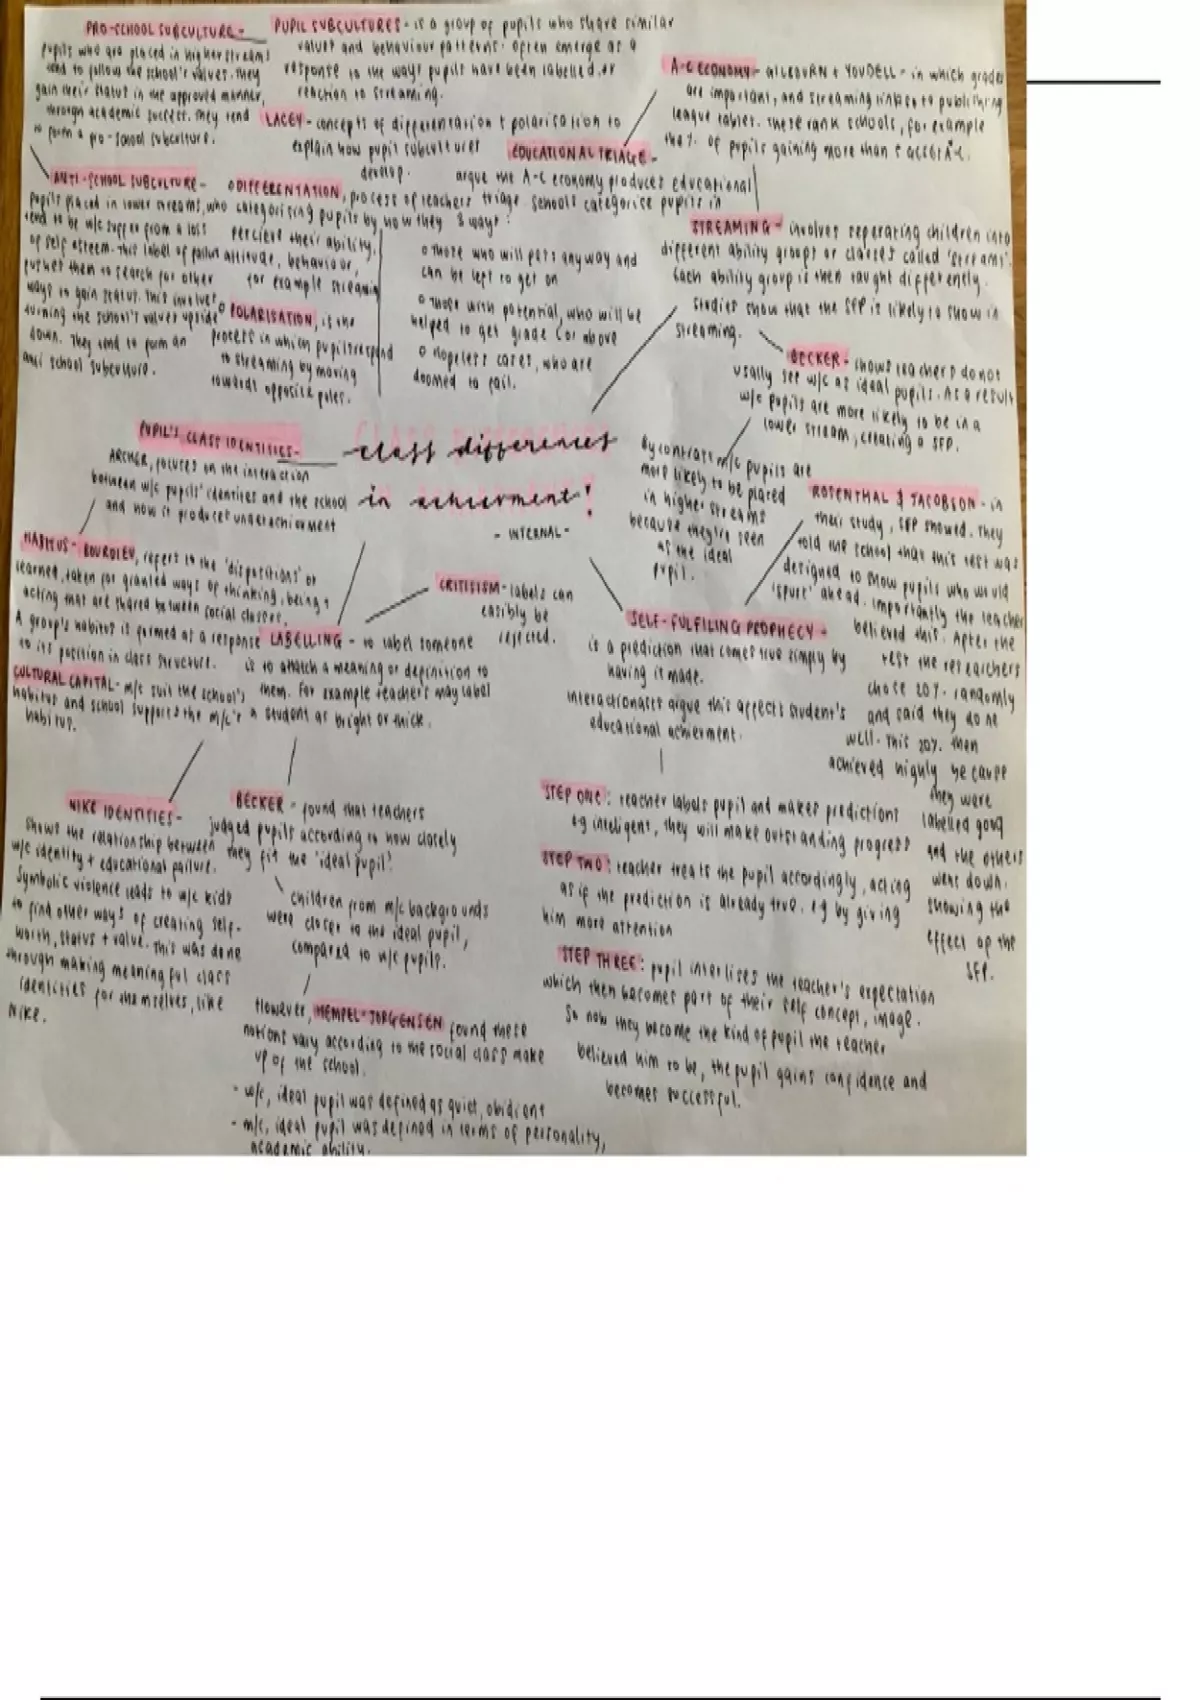 PRO-SCHOOL SUBCULTURE -
pupils who are placed in higher streams
tend to follow the school's values. They
gain their status in the approved manner,
through academic success. They tend
to form a pro-school subculture.
PUPIL SUBCULTURES - is a group of pupils who share similar
values and behaviour patterns. Often emerge as a
response to the ways pupils have been labelled, or
reaction to streaming.
LACEY - concepts of differentation + polarisation to
explain how pupil subcultures
develop.
A-C ECONOMY - GILBOURN + YOUDELL - in which grades
are important, and streaming links to publishing
league tables. These rank schools, for example
the % of pupils gaining more than 5 A-C.
EDUCATIONAL TRIAGE -
argue the A-C economy produces educational
triage. Schools categorise pupils in
3 ways:
o Those who will pass anyway and
can be left to get on
o Those with potential, who will be
helped to get grade C or above
o Hopeless cases, who are
doomed to fail.
ANTI-SCHOOL SUBCULTURE -
pupils placed in lower streams, who
tend to be w/c suffer from a loss
of self esteem. This label of failure
pushes them to search for other
ways to gain status. This involves
turning the school's values upside
down. They tend to form an
anti school subculture.
o DIFFERENTATION, process of teachers
categorising pupils by how they
percieve their ability,
attitude, behaviour,
for example streaming
o POLARISATION, is the
process in which pupils respond
to streaming by moving
towards opposite poles.
STREAMING - involves seperating children into
different ability groups or classes called 'streams'.
Each ability group is then taught differently.
studies show that the SFP is likely to show in
streaming.
BECKER - shows teachers do not
usally see w/c as ideal pupils. As a result
w/c pupils are more likely to be in a
lower stream, creating a SFP.
By contrast m/c pupils are
more likely to be placed
in higher streams
because they're seen
as the ideal
pupil.
PUPIL'S CLASS IDENTITIES -
ARCHER, focuses on the interaction
between w/c pupils' identities and the school
and how it produces underachievment
class differences
in achievment!
- INTERNAL -
HABITUS - BOURDIEU, refers to the 'dispositions' or
learned, taken for granted ways of thinking, being +
acting that are shared between social classes.
A group's habitus is formed as a response
to its position in class structure.
CULTURAL CAPITAL - m/c suit the school's
habitus and school supports the m/c's
habitus.
CRITISISM - labels can
easibly be
rejected.
LABELLING - to label someone
is to attatch a meaning or definition to
them. For example teacher's may label
a student as bright or thick.
ROSENTHAL & JACOBSON - in
their study, SFP showed. They
told the school that this test was
designed to show pupils who would
'spurt' ahead. Importantly the teacher
believed this. After the
test the researchers
chose 20% randomly
and said they done
well. This 20% then
achieved highly because
they were
labelled good
and the others
went down.
showing the
effect of the
SFP.
SELF-FULFILING PROPHECY -
is a prediction that comes true simply by
having is made.
Interactionists argue this affects student's
educational achievment.
STEP ONE: teacher labels pupil and makes predictions
eg intelligent, they will make outstanding progress
STEP TWO: teacher treats the pupil accordingly, acting
as if the prediction is already true. eg by giving
him more attention
STEP THREE: pupil interlises the teacher's expectation
which then becomes part of their self concept, image.
So now they become the kind of pupil the teacher
believed him to be, the pupil gains confidence and
becomes successful.
NIKE IDENTITIES -
shows the relationship between
w/c identity + educational failure.
Symbolic violence leads to w/c kids
to find other ways of creating self-
worth, status + value. This was done
through making meaningful class
identities for themselves, like
Nike.
BECKER - found that teachers
judged pupils according to how closely
they fit the 'ideal pupil'.
children from m/c backgrounds
were closer to the ideal pupil,
compared to w/c pupils.
However, HEMPEL-JORGENSEN found these
notions vary according to the social class make
up of the school.
- w/c, ideal pupil was defined as quiet, obidient
- m/c, ideal pupil was defined in terms of personality,
academic ability.